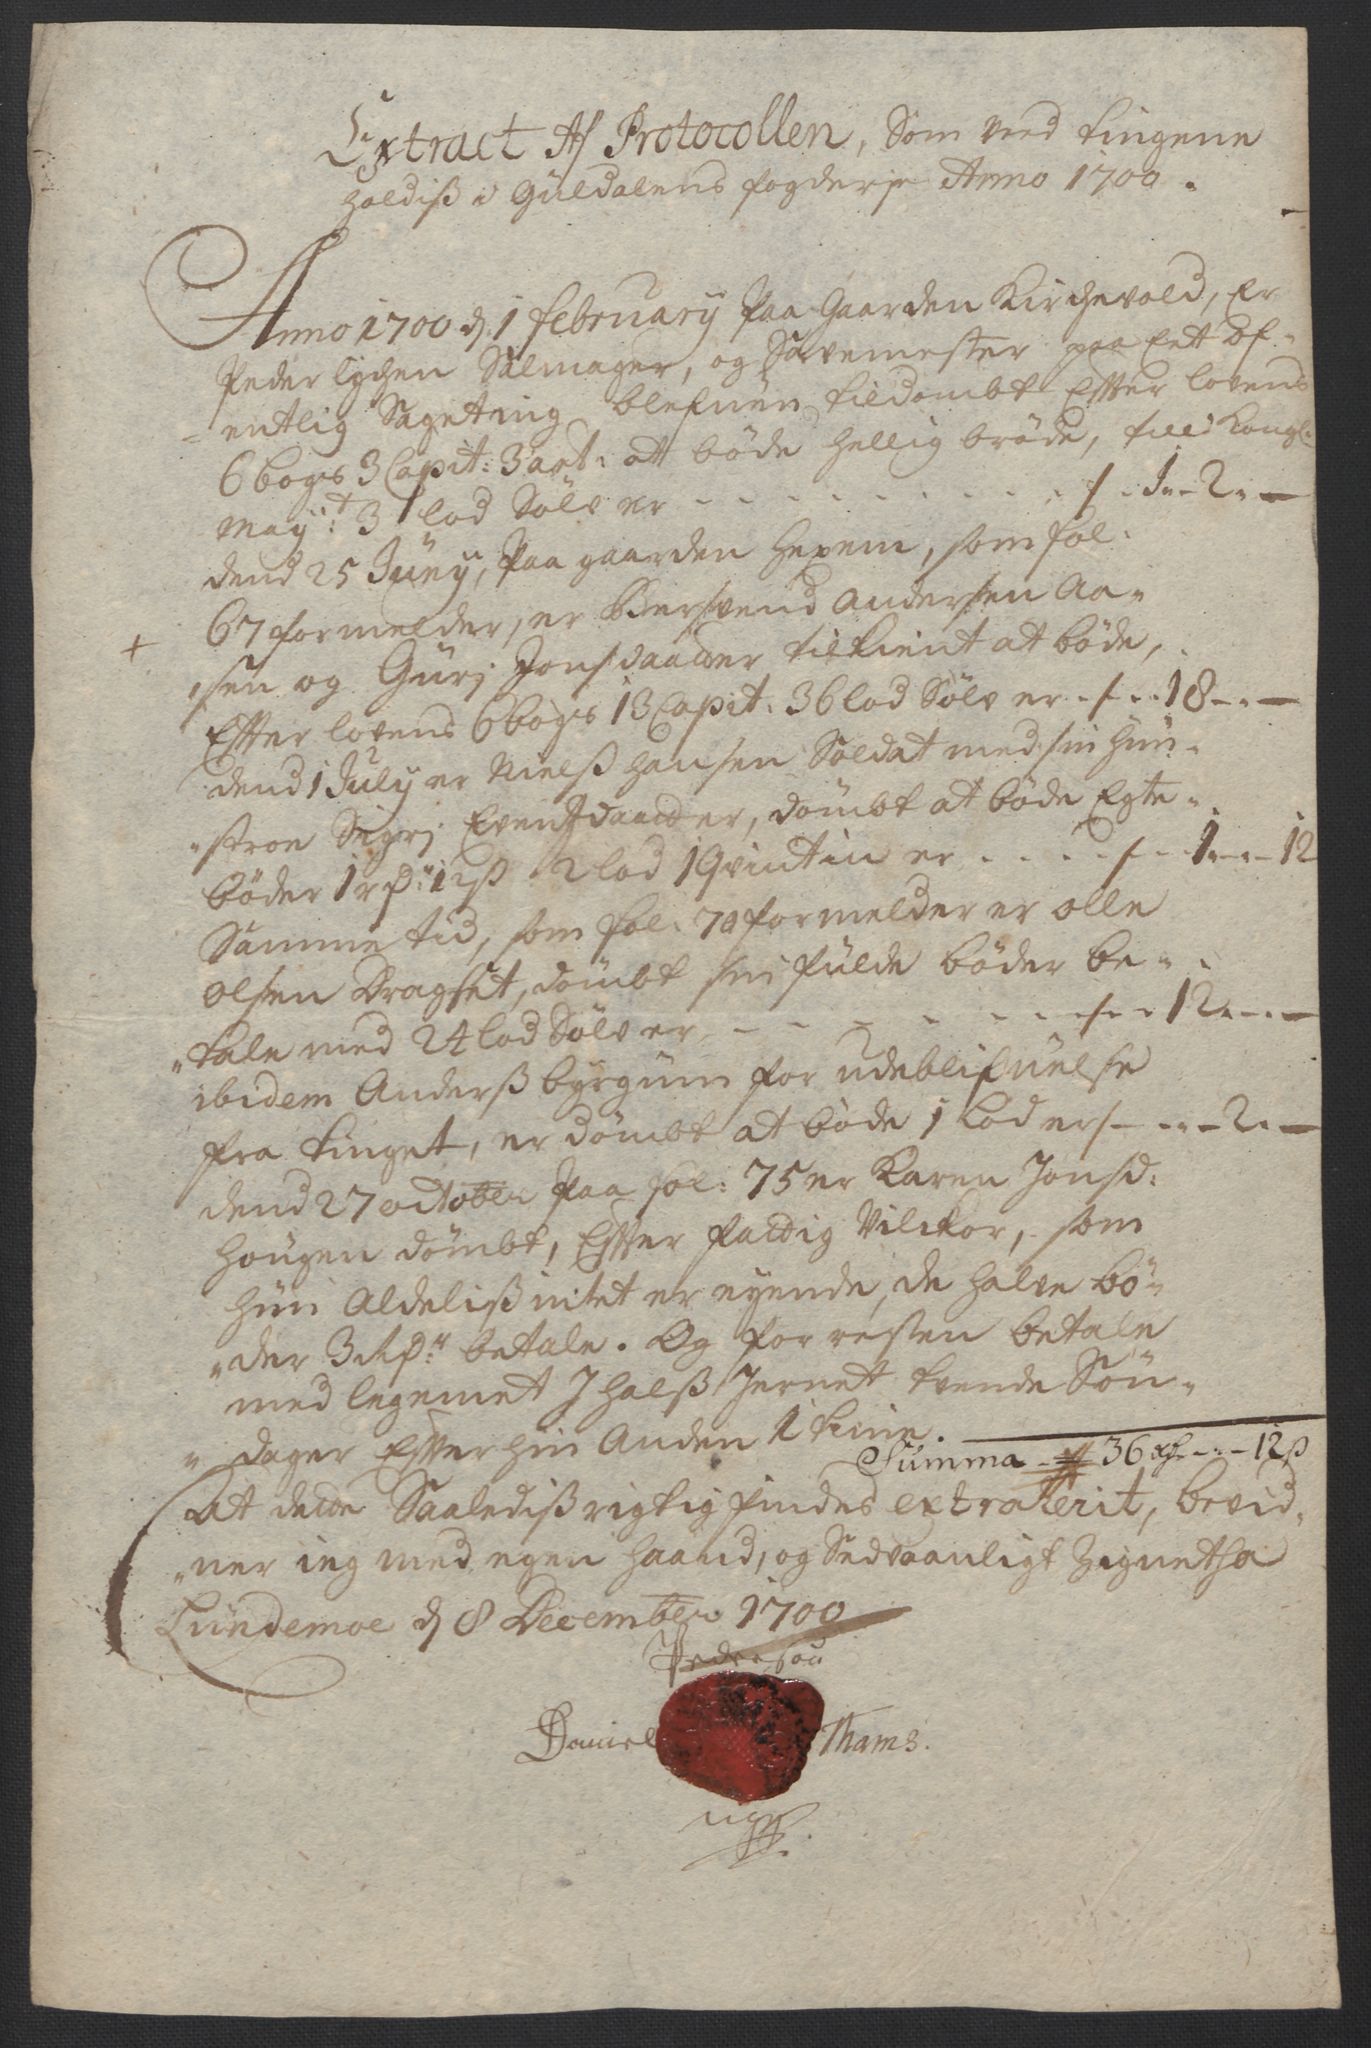 Extract Af Protocollen, Som ved tingene
holdiß i Guldalens fogderje Anno 1700.
Anno 1700 d. 1 february Paa Gaarden Kirchevold, Er
Peder lychen Sålmager, og Savemester paa Eett Of-
entlig Sageting blefuen tildømbt Effter lovens
6 bogs 3 Capit: 3 art: at bøde Hellig brøde, till Kongl:
May:t 3 lod Sølv er - - - - - - - - - 1 - 2 -
dend 25 Juny, Paa gaarden Hexem, som fol:
67 formelder, er Bersvend Andersen Aa-
sen og Guri Jonsdaatter tilkient at bøde,
Effter lovens 6 bogs 13 Capit: 36 lod Sølv er - 18 - -
dend 1 July er Nielß Hansen Soldat med sin Hu-
stroe Sigri Evensdaatter, dømbt at bøde Egte-
bøder 1 rd:r 12 ß 2 lod 1 Qvintin er - - - - 1 - 12
Samme tid, som fol: 70 formelder er Olle
Olsen Dragset, dømbt sin fulde bøder be-
tale med 24 lod Sølv er - - - - - - 12 - -
ibidem Anderß byrgum for udeblifuelse
fra tinget, er dømbt at bøde 1 Lod er - - 2 -
dend 27 october Paa fol: 75 er Karen Jonsd:
Hougen dømbt, Effter fattig Vilckor, som
hun Aldeliß intet er eyende, de halve bø-
der 3 Rd:r betale. Og for resten betale
med legemet I halß Jernet tvende Søn-
dager Effter hin Anden
Summa - 36 rd - - 12 ß
At dette Saalediß rigtig findes extraherit, bevid-
ner ieg med egen haand, og Sedvaanligt Zignetha
Lundemoe d 8 December 1700
Pedersøn
Daniel Thams.
mpp.